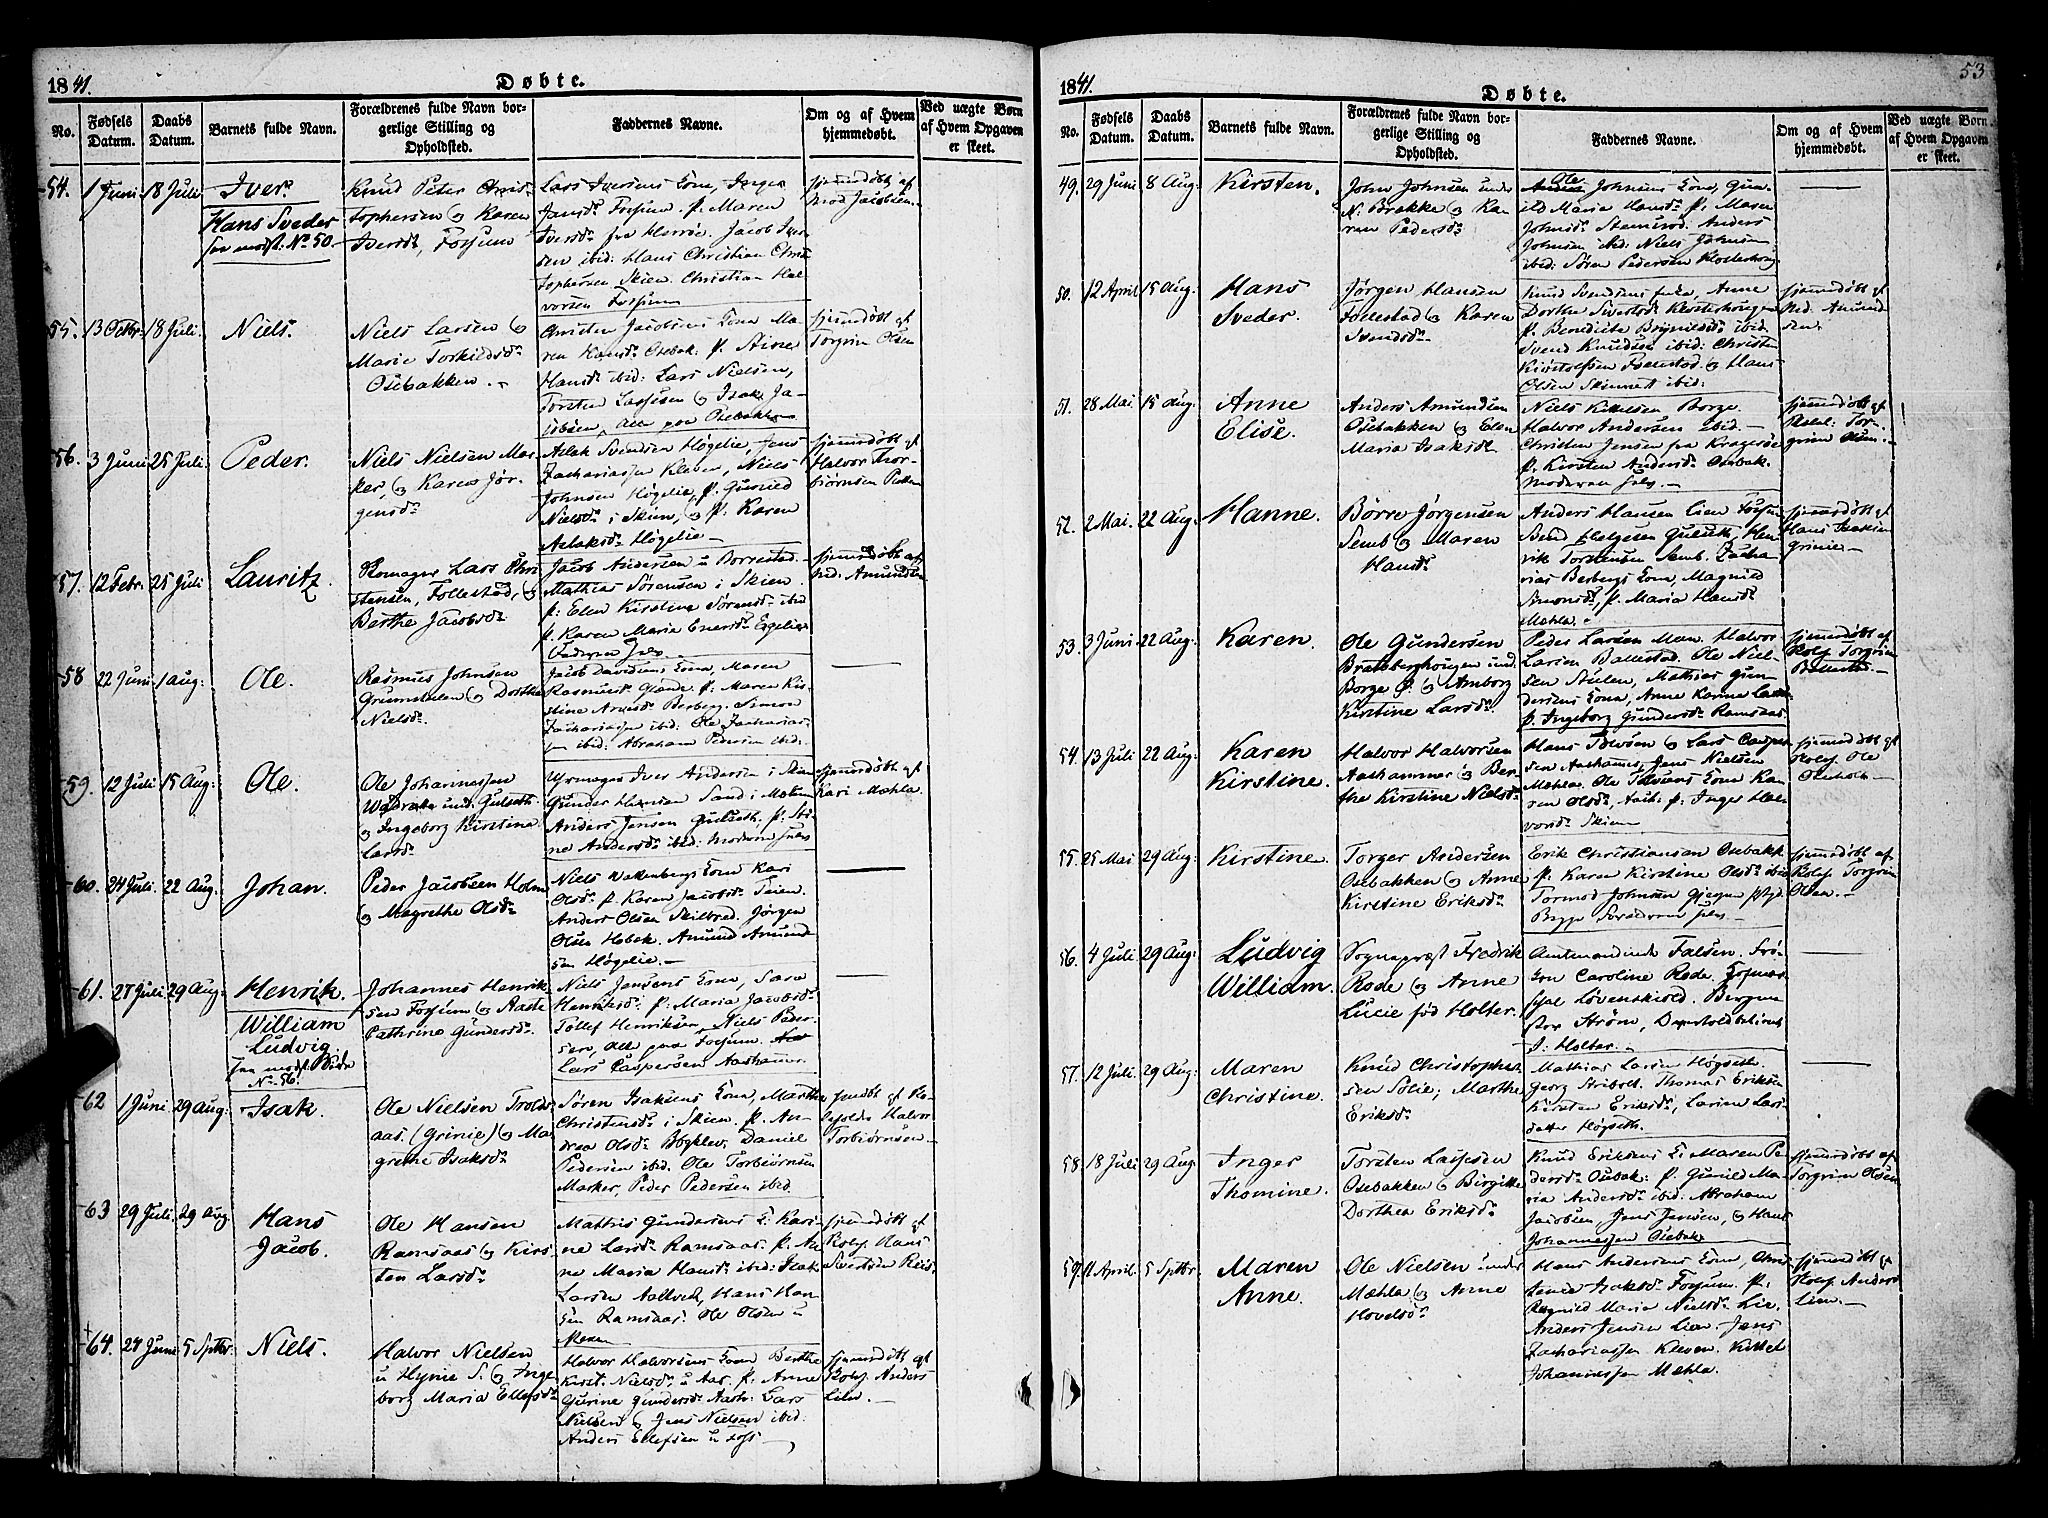 1841.
Døbte.
No.
Fødsels Datum.
Daabs Datum.
Barnets fulde Navn.
Forældrenes fulde Navn borgerlige Stilling og Opholdsted.
Faddernes Navne.
Om og af Hvem hjemmedøbt.
Ved uægte Børn af Hvem Opgaven er skeet.
54. 1 Juni 18 Juli Iver.
Hans Sveder
see modst: No 50.
Knud Peter Chris-
tophersen og Karen
Iversdr, Fossum
Lars Iversens Kona, Inger
Jansdr Fossum. p. Maren
Iversdr fra Herröe. Jacob Iver-
sen ibid: Hans Christian Chris-
tophersen Skien. Christian Hal-
vorsen Fossum
hjemmedöbt af
Mod Jacobsen.
55. 13 Octbr. 18 Juli. Niels.
Niels Larsen og
Marie Torkildsdr
Osebakken.
Christen Jacobsens Kona Ma-
ren Hansdr Osebak: p. Aine
Hansdr ibid: Lars Nielsen,
Torsten Lassesen og Isak Ja-
cobsen, alle paa Osebakken
hjemmdöbt af
Torgrim Olsen
56. 3 Juni 25 Juli. Peder.
Niels Nielsen Mar-
ker, og Karen Jör-
gensdr
Aslak Svendsen Högelie, Jens
Zachariassen Kleven, Niels
Johnsen Högelie, p. Gunild
Nielsdr i Skien, og p. Karen
Aslaksdr Högelie
hjemmdöbt af
Halvor Thor-
biörnsen
57. 12 Febr. 25 Juli Lauritz.
Lars Chri-
stensen, Follestad, og
Berthe Jacobsdr
Jacob Andersen u Borrestad.
Mathias Sörensen i Skien.
p: Elen Kirstine Sörensdr ibid
p. Karen Maria Enersdr
Faderen selv
hjemmdöbt af
Amundsen
58 22 Juni 1 Aug: Ole.
Rasmus Johnsen
og Dorthe
Nielsdr
Jacob Davidsens Kona, Maren
Rasmusdr p. Maren Kir-
stine Berberg. Simon
Zachariassen ibid. Ole Zacharias-
sen ibid: Abraham Pedersen ibid:
59. 12 Juli 15 Aug: Ole.
Ole Johannessen
und: Gulseth
og Ingeborg Kirstine
Larsdr
Iver Andersen i Skien
Gunder Hansen Sand i
Anders Jensen Gulseth. p.
Andersdr ibid: Moderen selv
hjemmdöbt af
Kari Mæhla.
60. 24 Juli. 22 Aug. Johan.
Peder Jacobsen Holm
og Magrethe Olsdr
Niels Kona Kari
Olsdr p. Karen Jacobsdr
Anders Olsen Skilbred. Jörgen
Olsen Hobæk. Amund Amund-
sen Högelie.
61. 27 Juli 29 Aug: Henrik.
William
Ludvig.
see modst. Side
No. 56.
Johannes Henrik-
sen Fossum og Aaste
Cathrine Gundersdr
Niels Jansens Kona, Sara
Henriksdr: p: Maria Jacobsdr
Tollef Henriksen, Niels Peder-
sen, alle paa Fossum.
Lars Caspersen Aashammer.
62 1 Juni 29 Aug: Isak.
Ole Nielsen Trolds-
aas. (Grinie) og Ma-
grethe Isaksdr
Sören Isaksens Kona, Marthe
Christensdr i Skien. p. An-
drea Olsdr Daniel
Pedersen ibid. Ole Torbiörnsen
Marker, Peder Pedersen ibid.
Halvor
Torbiörnsen
63 29 Juli 29 Aug. Hans
Jacob.
Ole Hansen
Ramsaas og Kirs-
ten Larsdr
Mathis Gundersens K. Kari-
ne Larsdr Ramsaas. p. An-
ne Maria Hansdr ibid: Isak
Larsen Hans Han-
sen Ramsaas. Ole Olsen u
Moen
hjemmdöbt af
Hans
Sivertsen
64. 24 Juni 5 Sptbr. Niels.
Halvor Nielsen
u Hynie S. og Inge-
borg Maria Ellefsdr
Halvor Halvorsens Kona Berthe
Kirst. Nielsdr u Aas. p. Anne
Gurine Gundersdr Lars
Nielsen og Jens Nielsen ibid.
Anders Ellefsen u Foss
hjemmdöbt af
Anders
Lien.
53
1841.
Døbte.
No.
Fødsels Datum.
Daabs Datum.
Barnets fulde Navn.
Forældrenes fulde Navn borgerlige Stilling og Opholdsted.
Faddernes Navne.
Om og af Hvem hjemmedøbt.
Ved uægte Børn af Hvem Opgaven er skeet.
49. 29 Juni 8 Aug: Kirsten.
John Johnsen under
N: Brække og Ka-
ren Pedersdr
Ole Johnsens Kona, Gun-
ild Maria Hansdr p. Maren
Johnsdr Anders
Johnsen ibid: Niels Johnsen
ibid: Sören Pedersen Klosterhoug
50. 12 April 15 Aug: Hans
Sveder.
Jörgen Hansen
Follestad og Karen
Svendsdr
Knud Svendsens Anne
Dorthe Klosterhougen
p. Benedicte Brynildsdr ibid
Svend Knudsen ibid: Christen
Follestad og Hans
Olsen ibid:
hjemmdöbt af
Amund-
sen.
51. 28 Mai 15 Aug: Anne
Elise.
Anders Amundsen
Osebakken og Elen
Maria Isaksdr
Niels Kittelsen Borge.
Halvor Andersen ibid.
Christen Jensen fra Krageröe
p. Kirsten Andersdr Osebak.
Moderen selv.
hjemmdöbt af
Tor-
grim Olsen.
52. 2 Mai. 22 Aug: Hanne.
Börre Jörgensen
Semb og Maren
Hansdr
Anders Hansen Lien
Hen-
rik Torstensen Semb. Zacha-
rias Berbergs Kona, Magnild
Simonsdr, p. Maria Hansdr
Mæhla.
hjemmdöbt af
Hans Isaksen
Grinie
53. 3 Juni 22 Aug: Karen.
Ole Gundersen
Bratsberghougen und.
Borge og Amborg
Kirstine Larsdr.
Peder Larsen Moen. Halvor
Larsen Ballestad. Ole Niel-
sen Mathias Gun-
dersens Kona, Anne Karine Larsdr
p. Ingeborg Gundersdr Ramsaas
hjemmdöbt af
Torgrim
Ballestad.
54. 13 Juli 22 Aug: Karen
Kirstine.
Halvor Halvorsen
Aashammer og Ber-
the Kirstine Nielsdr
Hans og Lars Casper-
sen Aashammer, Jens Nielsen
Mæhla. Ole Kona Ka-
ren Olsdr, p. Inger Hal-
vorsdr Skien
hjemmdöbt af
Ole
55. 25 Mai 29 Aug: Kirstine.
Torger Andersen
Osebakken og Anne
Kirstine Eriksdr
Erik Christiansen Osebakk.
p. Karen Kirstine Olsdr ibid
Tormod Johnsen
selv
hjemmdöbt af
Torgrim
Olsen.
56. 4 Juli 29 Aug: Ludvig
William.
Sognepræst Fredrik
Rode og Anne
Lucie fød Holter.
Amtmandinde Falsen. Frö-
ken Caroline Rode. Hofmar-
skal Lövenskiold. Bergme-
ster Ström,
J: Holter.
57. 12 Juli 29 Aug: Maren
Christine.
Knud Christopher-
sen Solie; Marthe
Eriksdr
Mathias Larsen Högseth.
Georg Stribolt. Thomas Eriksen
Kirsten Eriksdr, Larine Lars-
datter Högseth.
58. 18 Juli 29 Aug Inger
Thomine.
Torsten Lassesen
Osebakken og Birgitte
Dorthea Eriksdr
Knud Eriksens K: Maren Pe-
dersdr Osebak: p. Gunild Ma-
ria Andersdr ibid: Abraham
Jacobsen, Jens Jensen, og Hans
Johannessen Osebak
hjemmdöbt af
Torgrim Olsen
59. 11 April. 5 Sptbr. Maren
Anne.
Ole Nielsen under
Mæhla og Anne
Hovelsdr
Hans Andersens Kona,
Isaksdr Fossum. p.
Ragnild Maria Nielsdr Lie.
Anders Jensen Lien. Jens
Zachariassen Kleven. Kittel
Johannessen Mæhla.
hjemmdöbt af
Anders
Lien.